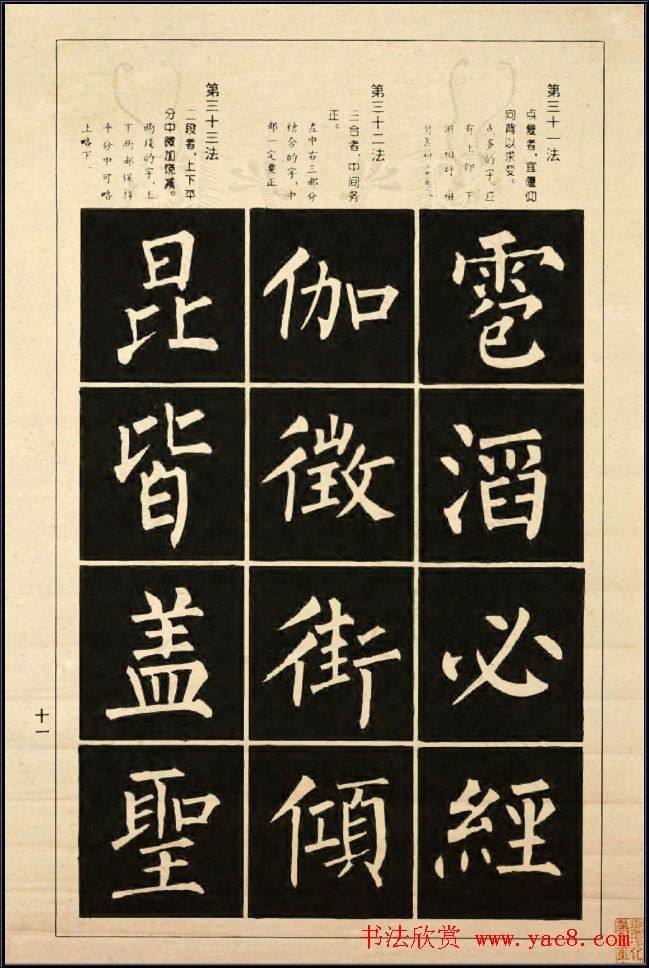 第三十一法
点复者，宜偃仰
向背以求变。
点多的字，应
有上仰、下
俯、相对、相
第三十二法
三合者，中间务
正。
左中右三部分
结合的字，中
部一定要正。
第三十三法
二段者，上下平
分中微加饶减。
两段的字，上
下两部保持
平分中可略
上略下。
雹滔必经
伽徵街傾
昆皆盖聖
十一
书法欣赏 www.yac8.com